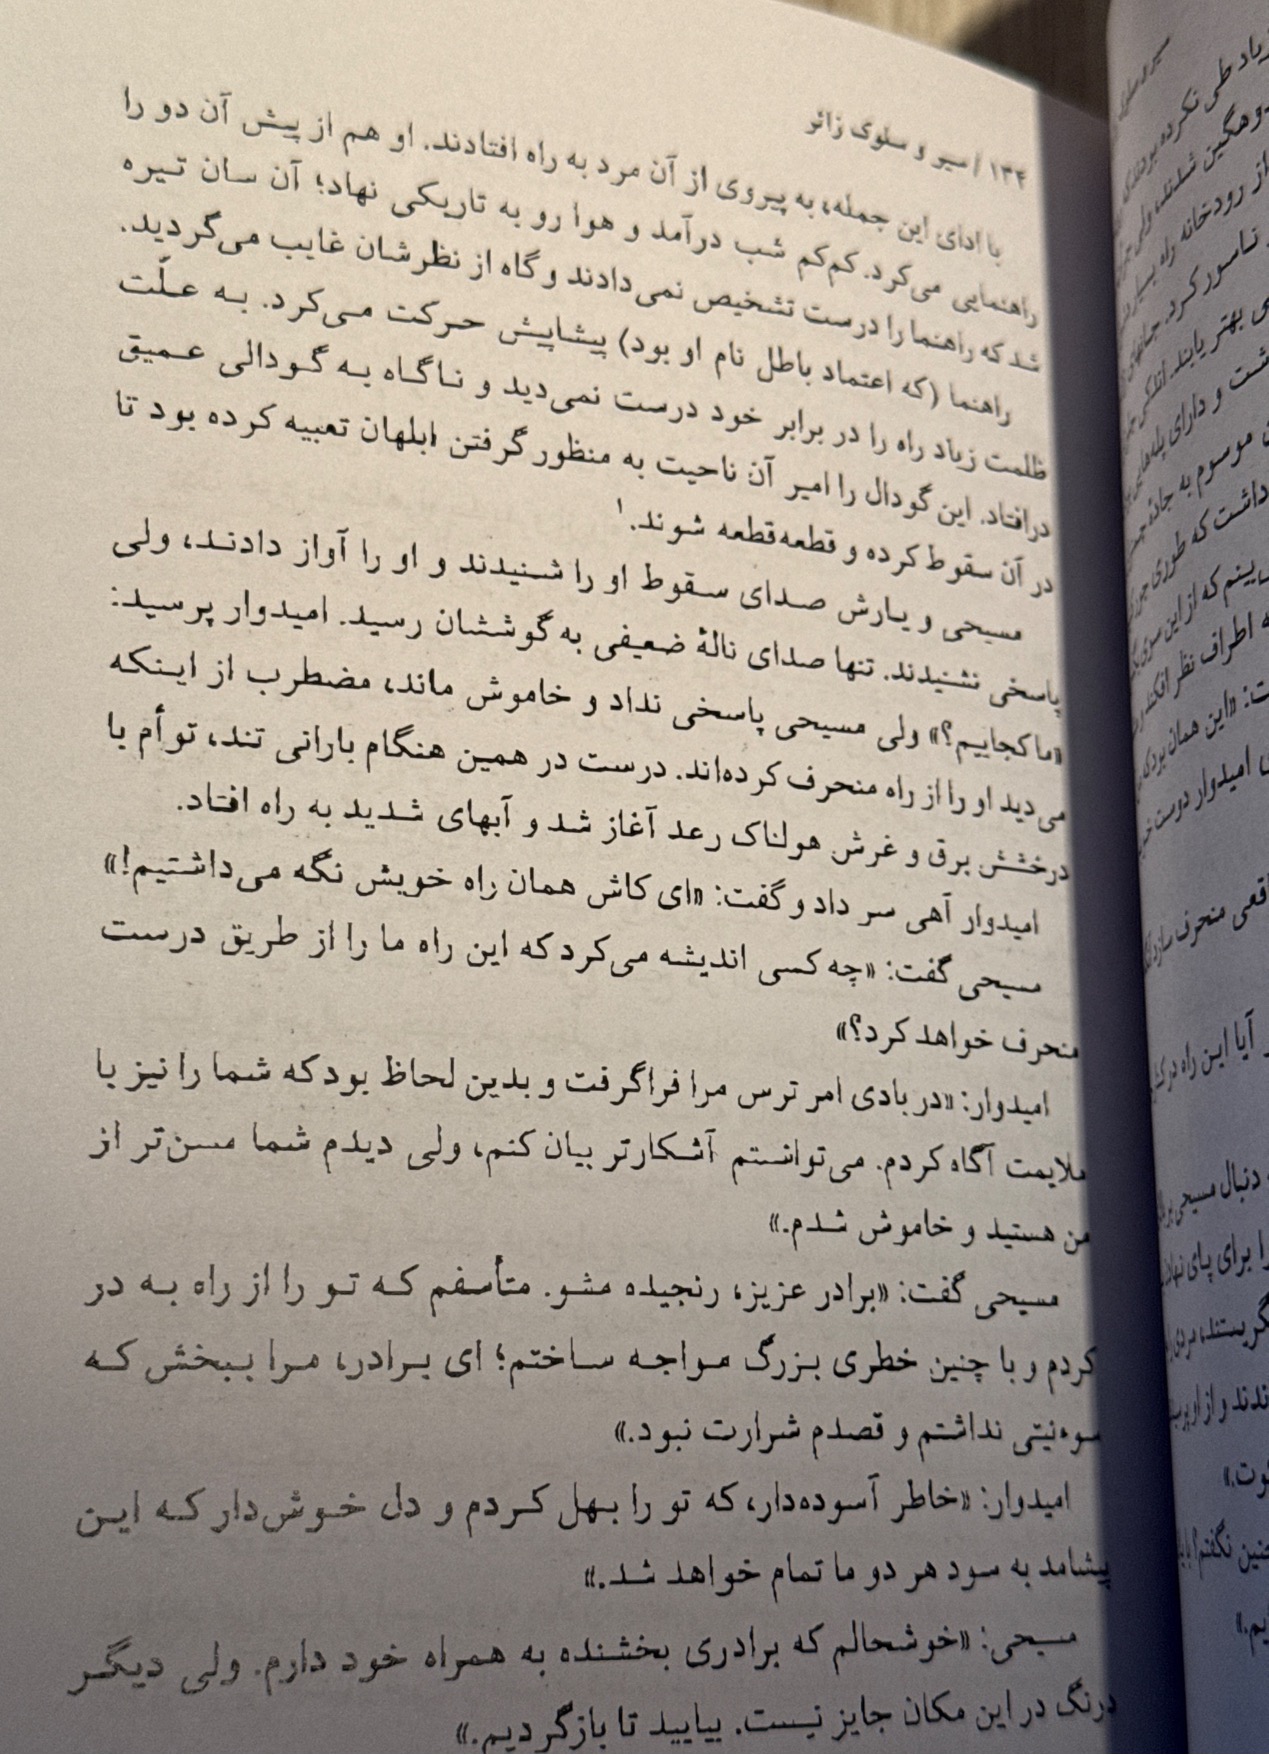 ۱۳۴ / سیر و سلوک زائر
با ادای این جمله، به پیروی از آن مرد به راه افتادند. او هم از پیش آن دو را
راهنمایی می‌کرد. کم‌کم شب درآمد و هوا رو به تاریکی نهاد؛ آن سان تیره
شد که راهنما را درست تشخیص نمی‌دادند و گاه از نظرشان غایب می‌گردید.
راهنما (که اعتماد باطل نام او بود) پیشاپیش حرکت می‌کرد. به علّت
ظلمت زیاد راه را در برابر خود درست نمی‌دید و ناگاه به گودالی عمیق
درافتاد. این گودال را امیر آن ناحیت به منظور گرفتن ابلهان تعبیه کرده بود تا
در آن سقوط کرده و قطعه‌قطعه شوند.۱
مسیحی و یارش صدای سقوط او را شنیدند و او را آواز دادند، ولی
پاسخی نشنیدند. تنها صدای نالهٔ ضعیفی به گوششان رسید. امیدوار پرسید:
«ما کجاییم؟» ولی مسیحی پاسخی نداد و خاموش ماند، مضطرب از اینکه
می‌دید او را از راه منحرف کرده‌اند. درست در همین هنگام بارانی تند، توأم با
درخشش برق و غرش هولناک رعد آغاز شد و آبهای شدید به راه افتاد.
امیدوار آهی سر داد و گفت: «ای کاش همان راه خویش نگه می‌داشتیم!»
مسیحی گفت: «چه کسی اندیشه می‌کرد که این راه ما را از طریق درست
منحرف خواهد کرد؟»
امیدوار: «در بادی امر ترس مرا فراگرفت و بدین لحاظ بود که شما را نیز با
ملایمت آگاه کردم. می‌توانستم آشکارتر بیان کنم، ولی دیدم شما مسن‌تر از
من هستید و خاموش شدم.»
مسیحی گفت: «برادر عزیز، رنجیده مشو. متأسفم که تو را از راه به در
کردم و با چنین خطری بزرگ مواجه ساختم؛ ای برادر، مرا ببخش که
سوءنیتی نداشتم و قصدم شرارت نبود.»
امیدوار: «خاطر آسوده‌دار، که تو را بهل کردم و دل خوش‌دار که این
پیشامد به سود هر دو ما تمام خواهد شد.»
مسیحی: «خوشحالم که برادری بخشنده به همراه خود دارم. ولی دیگر
درنگ در این مکان جایز نیست. بیایید تا بازگردیم.»
زیاد طی نکرده بودند
از رودخانه راه
ناسور کرد.
ی بهتر یابند.
شت و دارای
موسوم به جادهٔ
داشت که طوری
بینم که از این سوی
ه اطراف نظر افکند
ت: «این همان
ی امیدوار دوست
قعی منحرف
آیا این راه در
دنبال مسیحی
را برای پای
گریستند، مردی
ندند و از او
وت.»
چنین نگفتم؟
یم.»